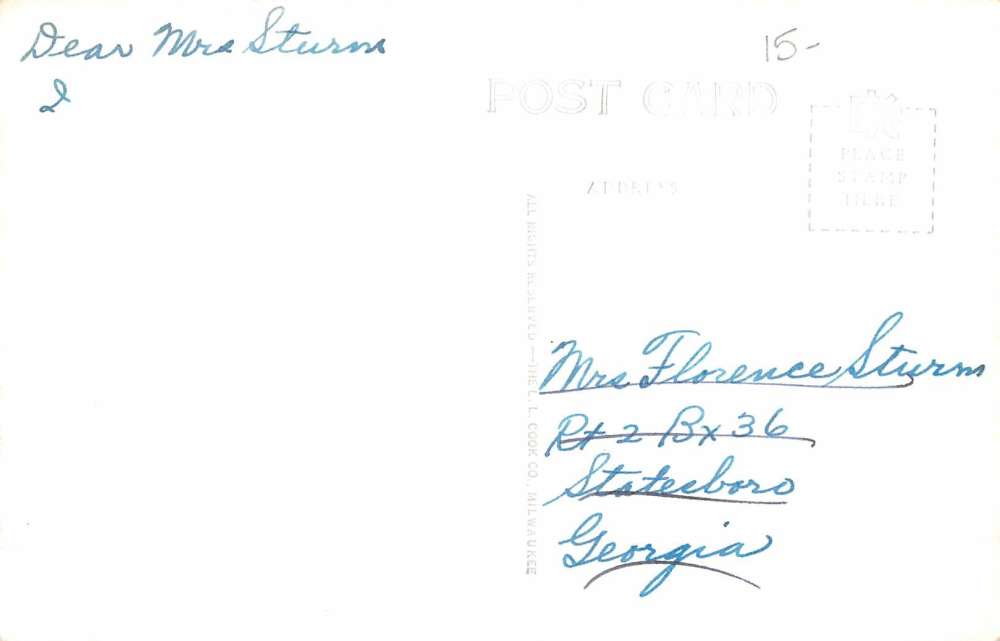 Dear Mrs Sturm
I
15-
POST CARD
EKC
PLACE
STAMP
HERE
ADDRESS
ALL RIGHTS RESERVED—THE L. L. COOK CO., MILWAUKEE
Mrs Florence Sturm
Rt 2 Bx 36
Statesboro
Georgia